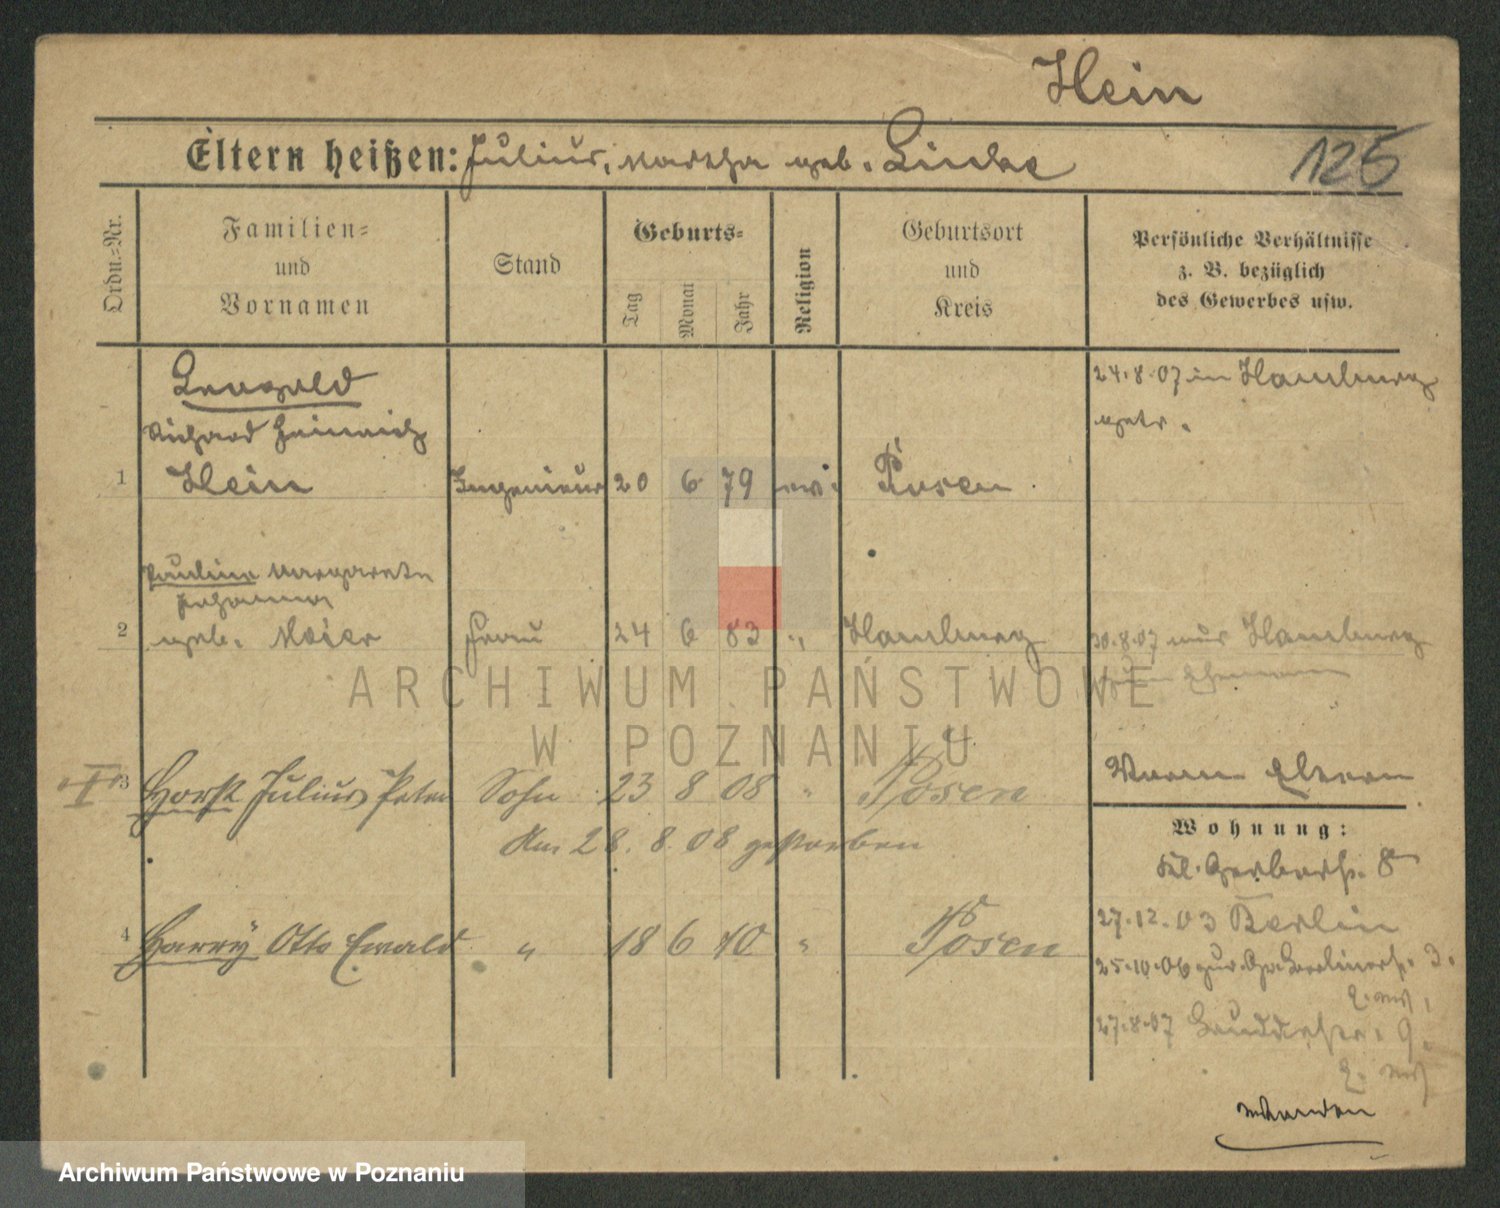 Hein
Eltern heißen: Julius, Martha geb. Linke
125
Ordn.=Nr.
Familien=
und
Vornamen
Stand
Geburts=
Tag
Monat
Jahr
Religion
Geburtsort
und
Kreis
Persönliche Verhältnisse
z. B. bezüglich
des Gewerbes usw.
Leopold
Richard Heinrich
1 Hein Ingenieur 20 6 79 ev. Posen
24.8.07 in Hamburg
getr.
Pauline Margarete
Johanna
2 geb. Meier Frau 24 6 83 " Hamburg
30.8.07 aus Hamburg
zum Ehemann
3 Horst Julius Peter Sohn 23 8 08 " Posen
Am 28. 8. 08 gestorben
4 Harry Otto Ewald " 18 6 10 " Posen
Eltern
Wohnung:
Kl. Gerberstr. 8
27.12.03 Berlin
25.10.06 Berlinerstr. 3.
27.8.07 9.
ARCHIWUM PAŃSTWOWE
W POZNANIU
Archiwum Państwowe w Poznaniu